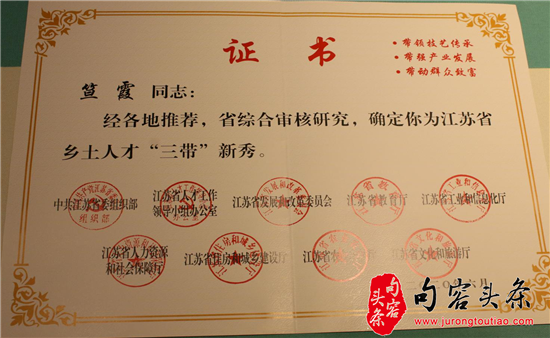 证书
• 带领技艺传承
• 带强产业发展
• 带动群众致富
笪霞 同志：
经各地推荐，省综合审核研究，确定你为江苏省
乡土人才“三带”新秀。
中共江苏省委组织部
江苏省人才工作
领导小组办公室
江苏省发展和改革委员会
江苏省教育厅
江苏省工业和信息化厅
江苏省人力资源
和社会保障厅
江苏省住房和城乡建设厅
江苏省文化和旅游厅
六月
句容头条
头条
www.jurongtoutiao.com